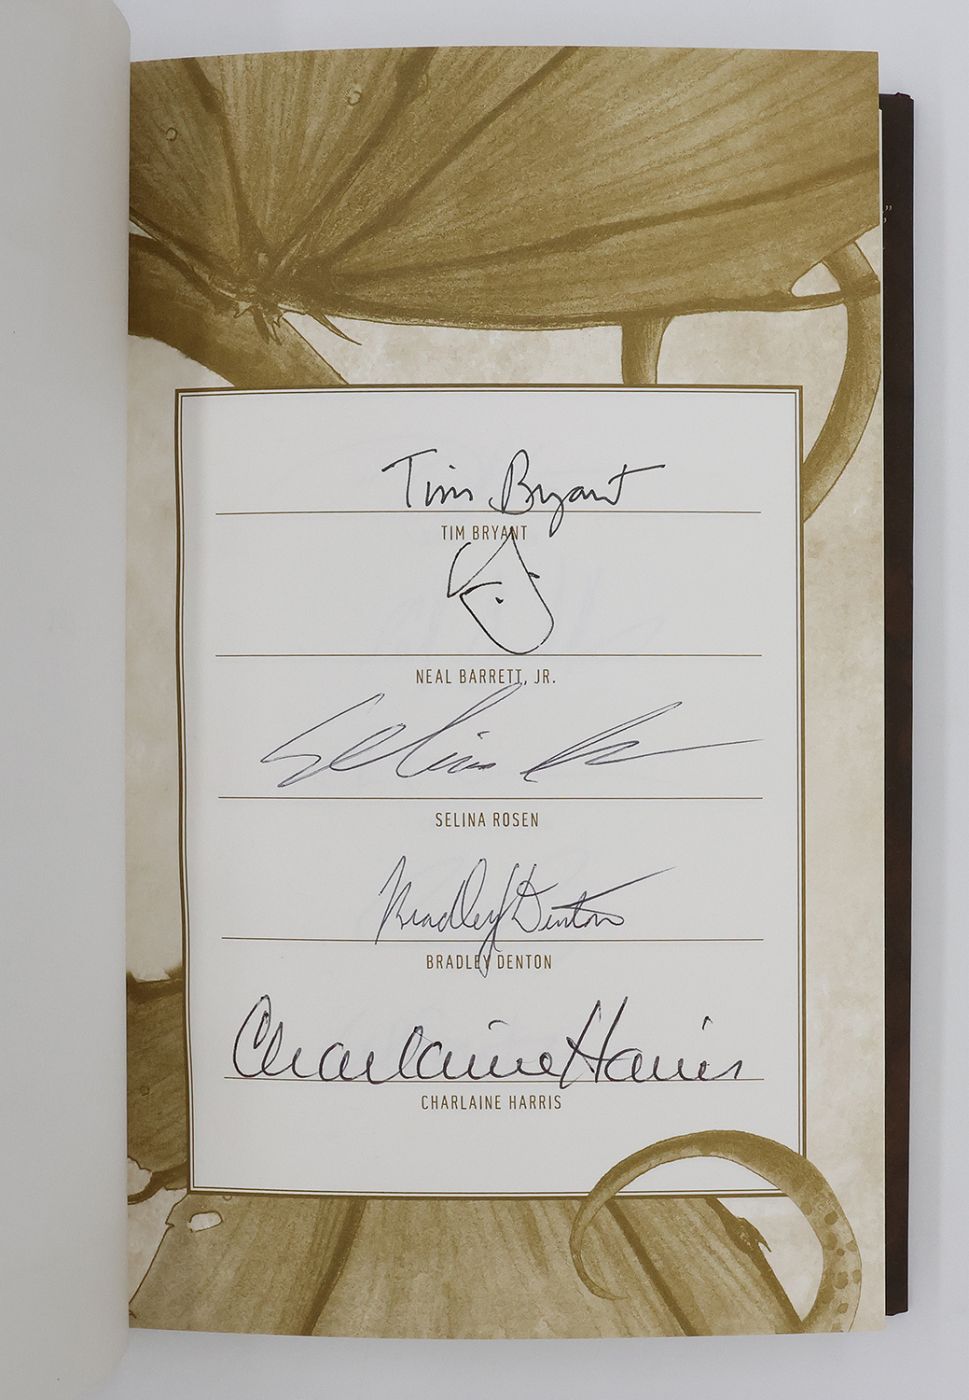 Tim Bryant
TIM BRYANT
NEAL BARRETT, JR.
Selina
SELINA ROSEN
Bradley Denton
BRADLEY DENTON
Charlaine Harris
CHARLAINE HARRIS